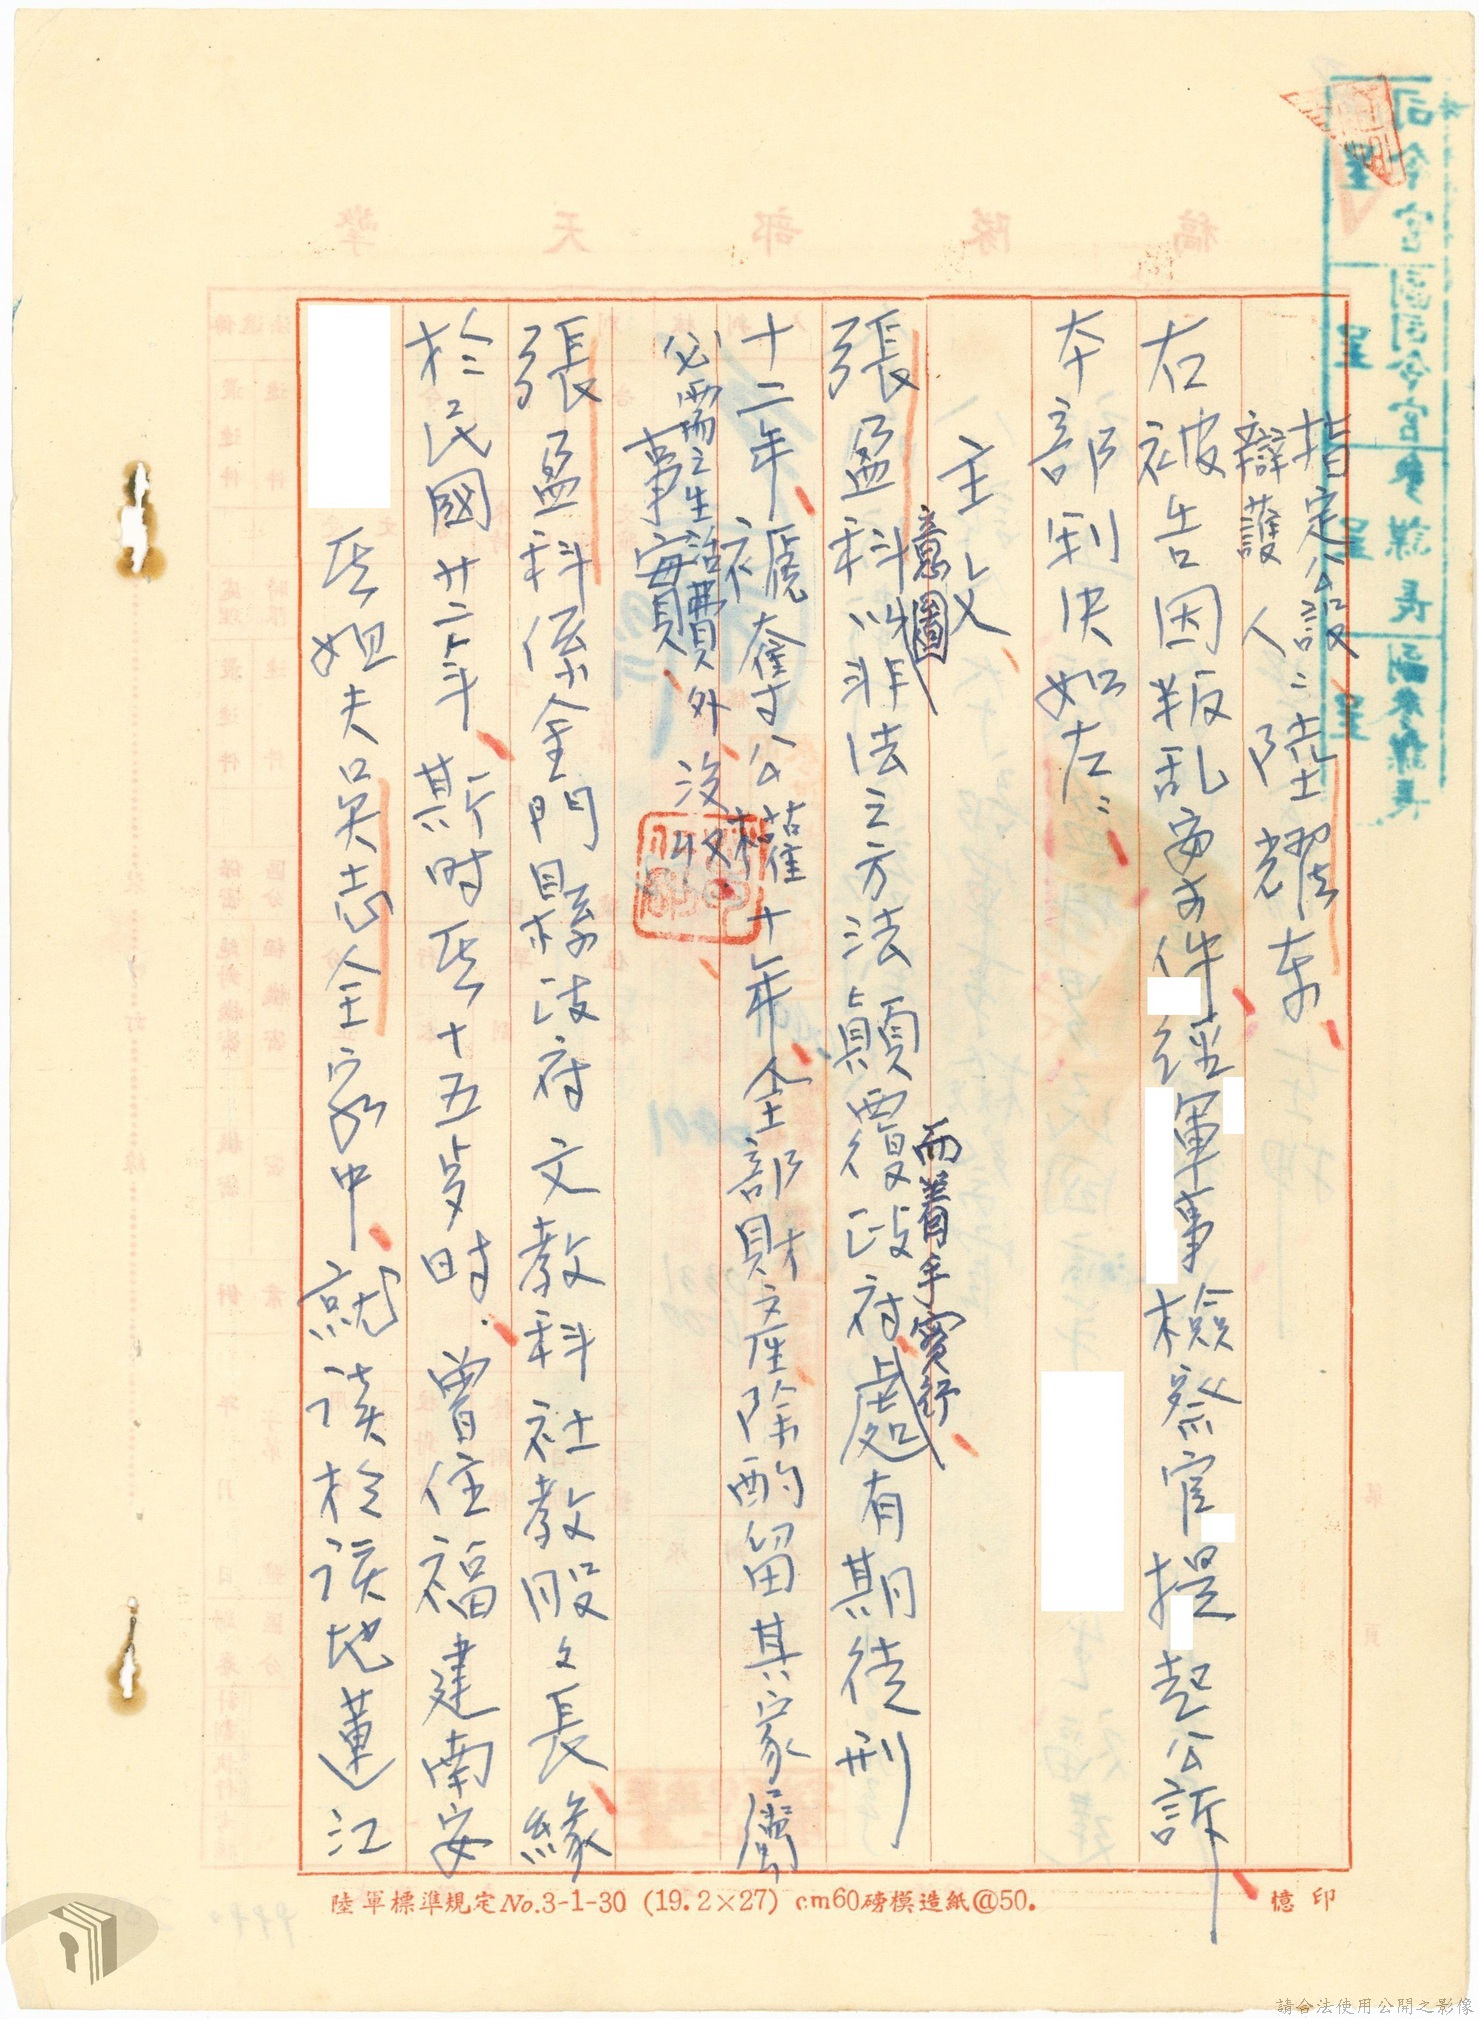 指定公設
辯護人：陸耀東
右被告因叛乱案件経軍事檢察官提起公訴
本部判決如左：
主文
張盈科意圖以非法之方法顛覆政府而着手實行處有期徒刑
十二年褫奪公權十年全部財產除酌留其家屬
必需之生活費外沒收
事實
張盈科係金門縣政府文教科社教股股長緣
於民國廿二年斯時氏十五岁時曾住福建南安
氏姐夫吳志全家中就读於该地蓮江
陸軍標準規定No.3-1-30 (19.2×27) cm60磅模造紙@50.
憶印
請合法使用公開之影像